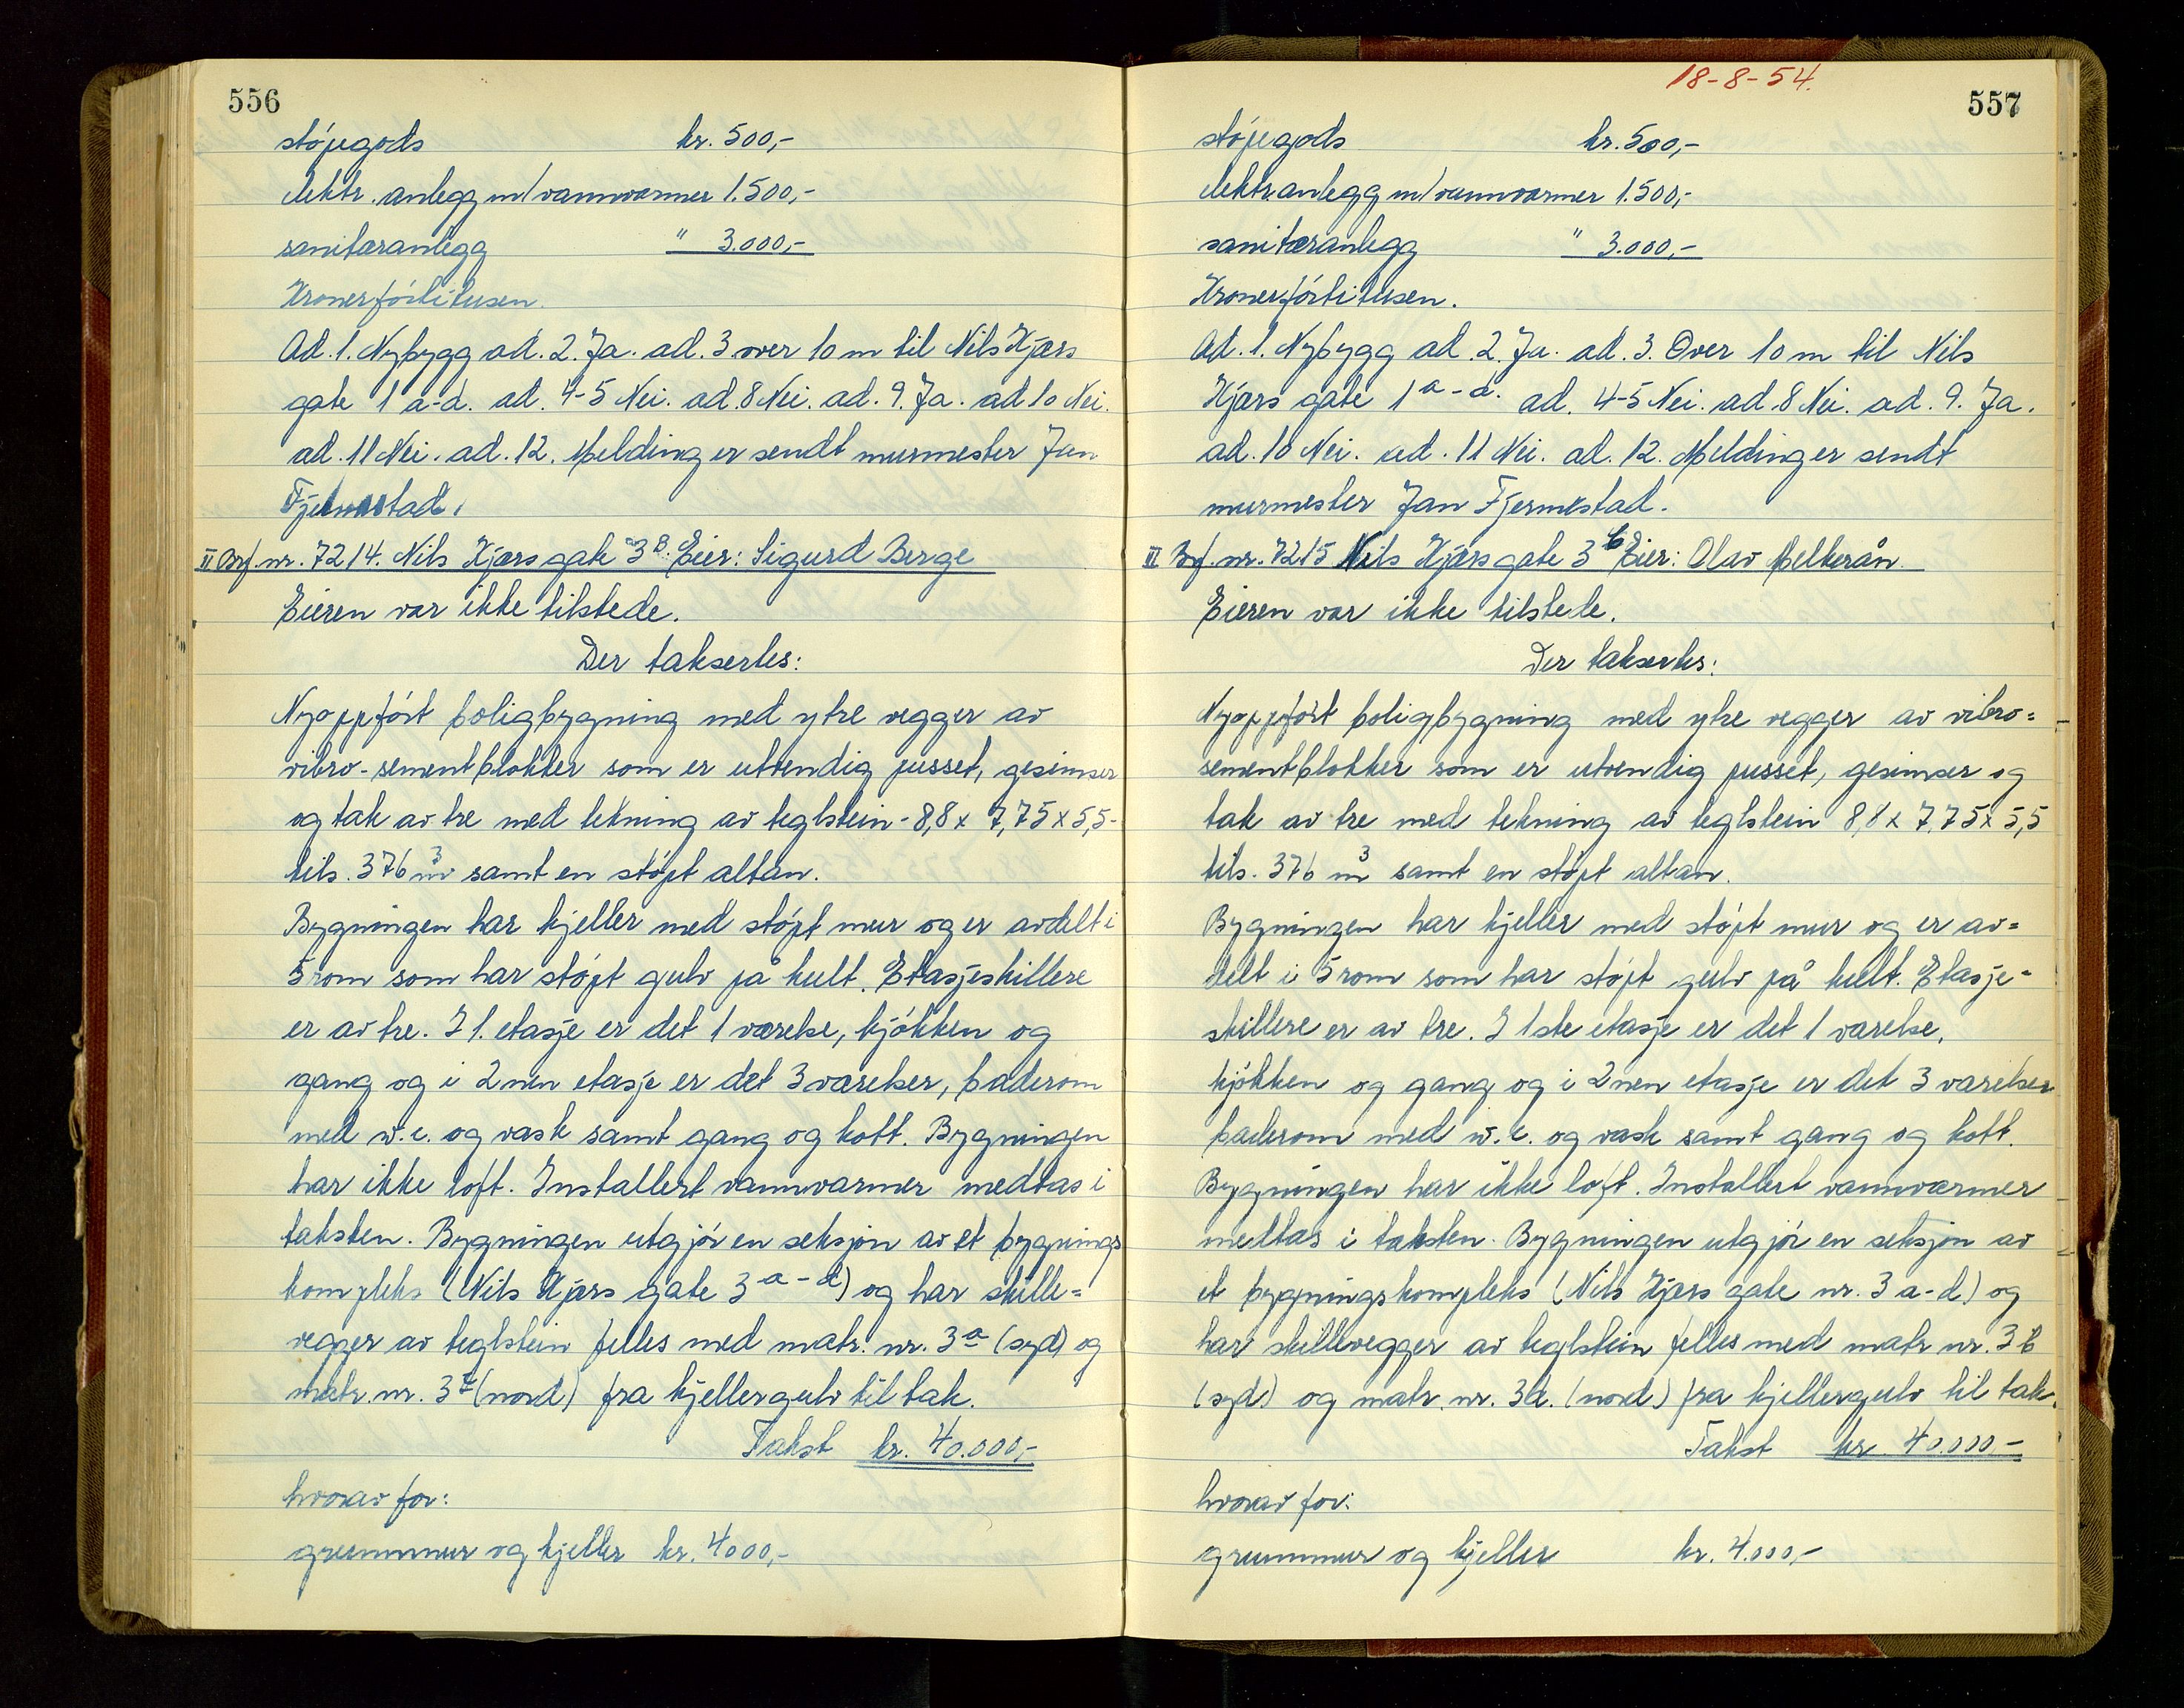 556
støpegods kr. 500,-
elektr. anlegg m/vannvarmer 1.500,-
sanitæranlegg " 3.000,-
Kronerførtitusen.
Ad. 1. Nybygg ad. 2. Ja. ad. 3 over 10 m til Nils Kjærs
gate 1 a-d. ad. 4-5 Nei. ad. 8 Nei. ad. 9. Ja. ad 10 Nei.
ad. 11 Nei. ad. 12. Melding er sendt murmester Jan
Fjermestad.
II Brf. nr. 7214. Nils Kjærs gate 3B. Eier: Sigurd Berge
Eieren var ikke tilstede.
Der takseres:
Nyoppført boligbygning med ytre vegger av
vibro-sementblokker som er utvendig pusset, gesimser
og tak av tre med tekning av teglstein - 8,8 x 7,75 x 5,5 -
tils. 376 m³ samt en støpt altan.
Bygningen har kjeller med støpt mur og er avdelt i
5 rom som har støpt gulv på kult. Etasjeskillere
er av tre. I 1. etasje er det 1 værelse, kjøkken og
gang og i 2nen etasje er det 3 værelser, baderom
med w.c. og vask samt gang og kott. Bygningen
har ikke loft. Installert vannvarmer medtas i
taksten. Bygningen utgjør en seksjon av et bygnings
kompleks (Nils Kjærs gate 3 a-d) og har skille=
vegger av teglstein felles med matr. nr. 3a (syd) og
matr. nr. 3c (nord) fra kjellergulv til tak.
Takst kr. 40.000,-
hvorav for:
grunnmur og kjeller kr. 4000,-
18-8-54.
557
støpegods kr. 500,-
elektr.anlegg m/vannvarmer 1.500,-
sanitæranlegg " 3.000,-
Kronerførtitusen.
Ad. 1. Nybygg ad. 2. Ja. ad. 3. Over 10 m til Nils
Kjærs gate 1 a-d. ad. 4-5 Nei. ad 8 Nei. ad. 9. Ja.
ad. 10 Nei. ad. 11 Nei. ad. 12. Melding er sendt
murmester Jan Fjermestad.
III Brf. nr. 7215 Nils Kjærs gate 3c Eier: Olav Melkerån
Eieren var ikke tilstede.
Der takseres:
Nyoppført boligbygning med ytre vegger av vibro=
sementblokker som er utvendig pusset, gesimser og
tak av tre med tekning av teglstein 8,8 x 7,75 x 5,5
tils. 376 m³ samt en støpt altan.
Bygningen har kjeller med støpt mur og er av=
delt i 5 rom som har støpt gulv på kult. Etasje=
skillere er av tre. I 1ste etasje er det 1 værelse,
kjøkken og gang og i 2nen etasje er det 3 værelser
baderom med w.c. og vask samt gang og kott.
Bygningen har ikke loft. Installert vannvarmer
medtas i taksten. Bygningen utgjør en seksjon av
et bygningskompleks (Nils Kjærs gate nr. 3 a-d) og
har skillevegger av teglstein felles med matr nr. 3 b
(syd) og matr. nr. 3d. (nord) fra kjellergulv til tak.
Takst kr 40.000-
hvorav for:
grunnmur og kjeller kr. 4.000,-